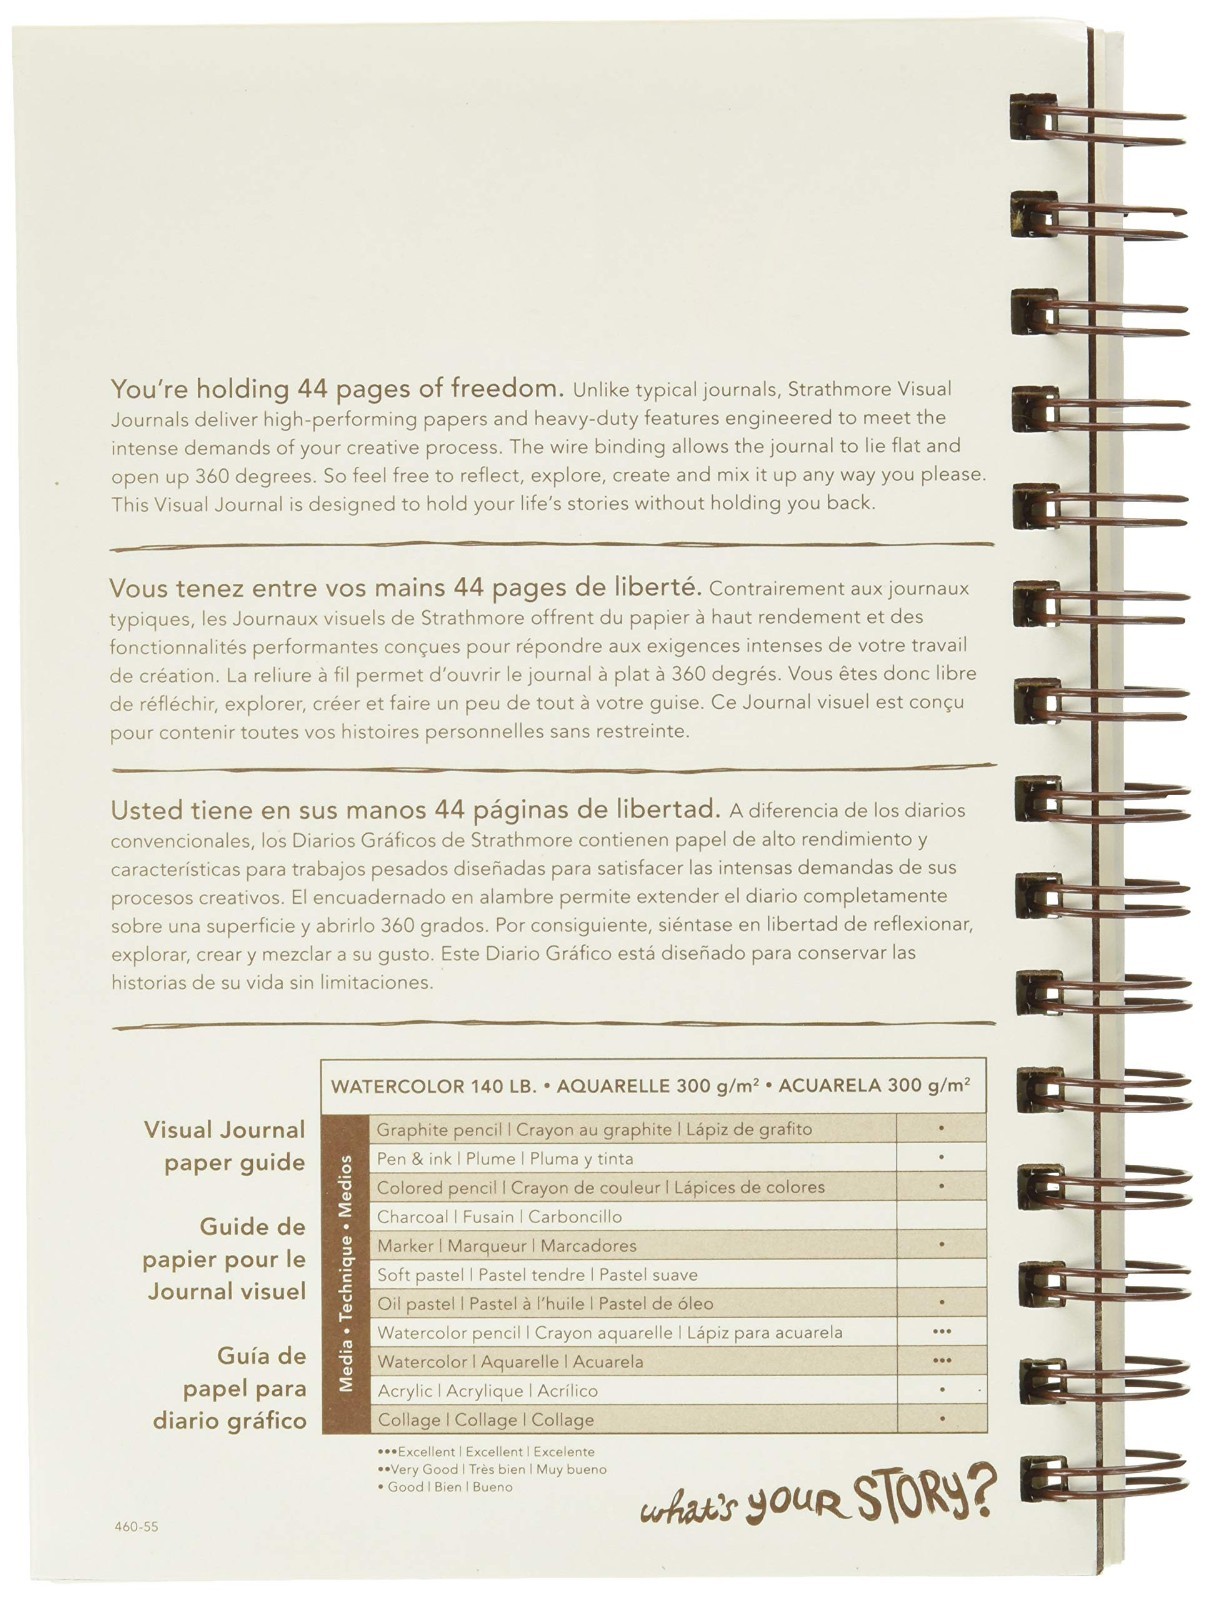 You're holding 44 pages of freedom. Unlike typical journals, Strathmore Visual
Journals deliver high-performing papers and heavy-duty features engineered to meet the
intense demands of your creative process. The wire binding allows the journal to lie flat and
open up 360 degrees. So feel free to reflect, explore, create and mix it up any way you please.
This Visual Journal is designed to hold your life's stories without holding you back.
Vous tenez entre vos mains 44 pages de liberté. Contrairement aux journaux
typiques, les Journaux visuels de Strathmore offrent du papier à haut rendement et des
fonctionnalités performantes conçues pour répondre aux exigences intenses de votre travail
de création. La reliure à fil permet d'ouvrir le journal à plat à 360 degrés. Vous êtes donc libre
de réfléchir, explorer, créer et faire un peu de tout à votre guise. Ce Journal visuel est conçu
pour contenir toutes vos histoires personnelles sans restreinte.
Usted tiene en sus manos 44 páginas de libertad. A diferencia de los diarios
convencionales, los Diarios Gráficos de Strathmore contienen papel de alto rendimiento y
características para trabajos pesados diseñadas para satisfacer las intensas demandas de sus
procesos creativos. El encuadernado en alambre permite extender el diario completamente
sobre una superficie y abrirlo 360 grados. Por consiguiente, siéntase en libertad de reflexionar,
explorar, crear y mezclar a su gusto. Este Diario Gráfico está diseñado para conservar las
historias de su vida sin limitaciones.
Visual Journal
paper guide
Guide de
papier pour le
Journal visuel
Guía de
papel para
diario gráfico
WATERCOLOR 140 LB. • AQUARELLE 300 g/m² • ACUARELA 300 g/m²
Media • Technique • Medios
Graphite pencil | Crayon au graphite | Lápiz de grafito •
Pen & ink | Plume | Pluma y tinta •
Colored pencil | Crayon de couleur | Lápices de colores •
Charcoal | Fusain | Carboncillo
Marker | Marqueur | Marcadores •
Soft pastel | Pastel tendre | Pastel suave
Oil pastel | Pastel à l'huile | Pastel de óleo •
Watercolor pencil | Crayon aquarelle | Lápiz para acuarela •••
Watercolor | Aquarelle | Acuarela •••
Acrylic | Acrylique | Acrílico •
Collage | Collage | Collage •
•••Excellent | Excellent | Excelente
••Very Good | Très bien | Muy bueno
• Good | Bien | Bueno
what's YOUR STORY?
460-55